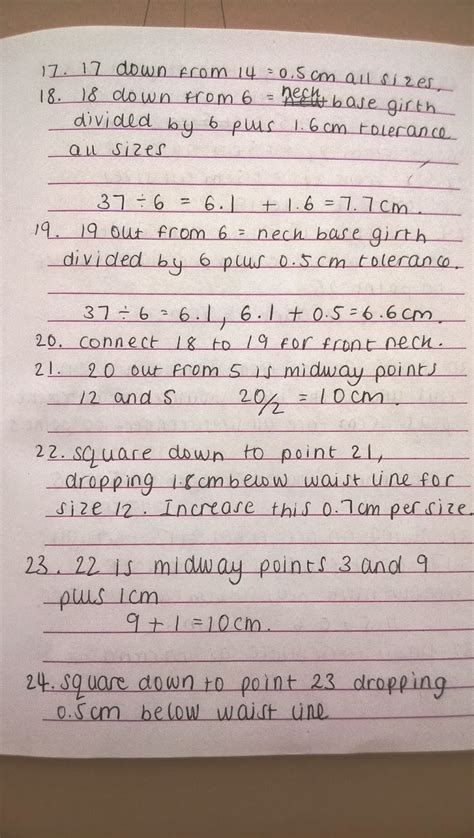 17. 17 down from 14 = 0.5cm all sizes.
18. 18 down from 6 = neck base girth
divided by 6 plus 1.6cm tolerance
all sizes
37 ÷ 6 = 6.1 + 1.6 = 7.7cm.
19. 19 out from 6 = neck base girth
divided by 6 plus 0.5cm tolerance.
37 ÷ 6 = 6.1, 6.1 + 0.5 = 6.6cm.
20. connect 18 to 19 for front neck.
21. 20 out from 5 is midway points
12 and 5 20/2 = 10cm.
22. square down to point 21,
dropping 1.8cm below waist line for
size 12. Increase this 0.7cm per size.
23. 22 is midway points 3 and 9
plus 1cm
9 + 1 = 10cm.
24. square down to point 23 dropping
0.5cm below waist line